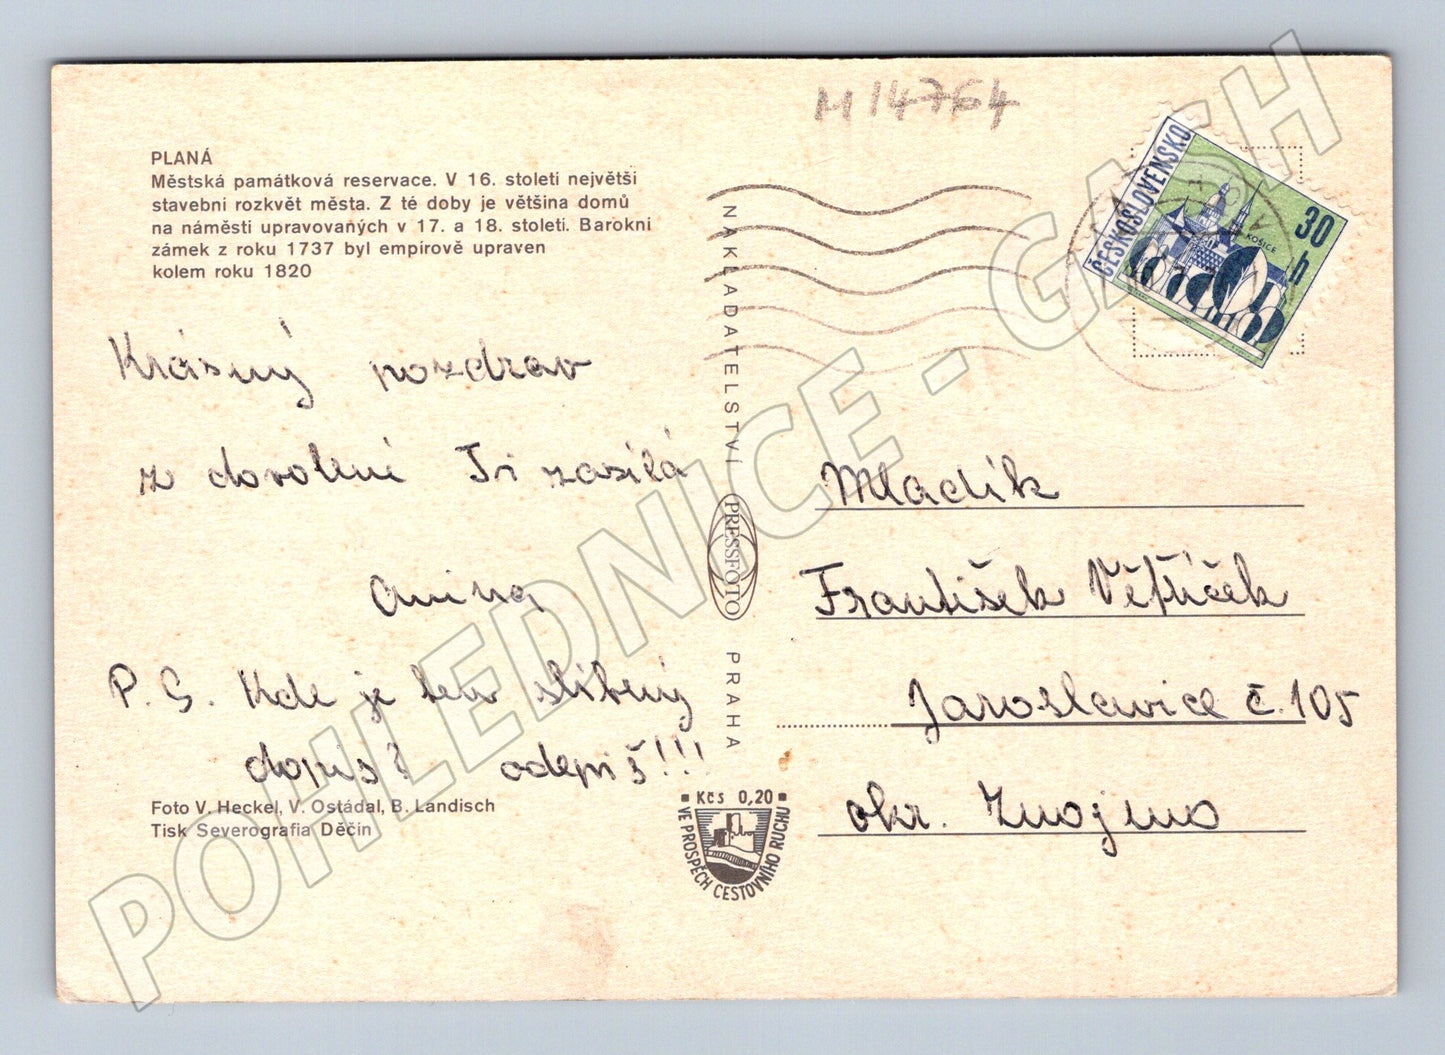 M 14764
PLANÁ
Městská památková reservace. V 16. století největší
stavební rozkvět města. Z té doby je většina domů
na náměstí upravovaných v 17. a 18. století. Barokní
zámek z roku 1737 byl empírově upraven
kolem roku 1820
Krásný pozdrav
z dovolené Ti zasílá
P.S. Kde je ten slíbený
dopis? odepiš!!!
Foto V. Heckel, V. Ostádal, B. Landisch
Tisk Severografia Děčín
NAKLADATELSTVÍ
PRESSFOTO
PRAHA
Kčs 0,20
VE PROSPĚCH CESTOVNÍHO RUCHU
ČESKOSLOVENSKO
KOŠICE
30 h
Mladík
František Větříček
Jaroslavice č. 105
okr. Znojmo
POHLEDNICE - GASH